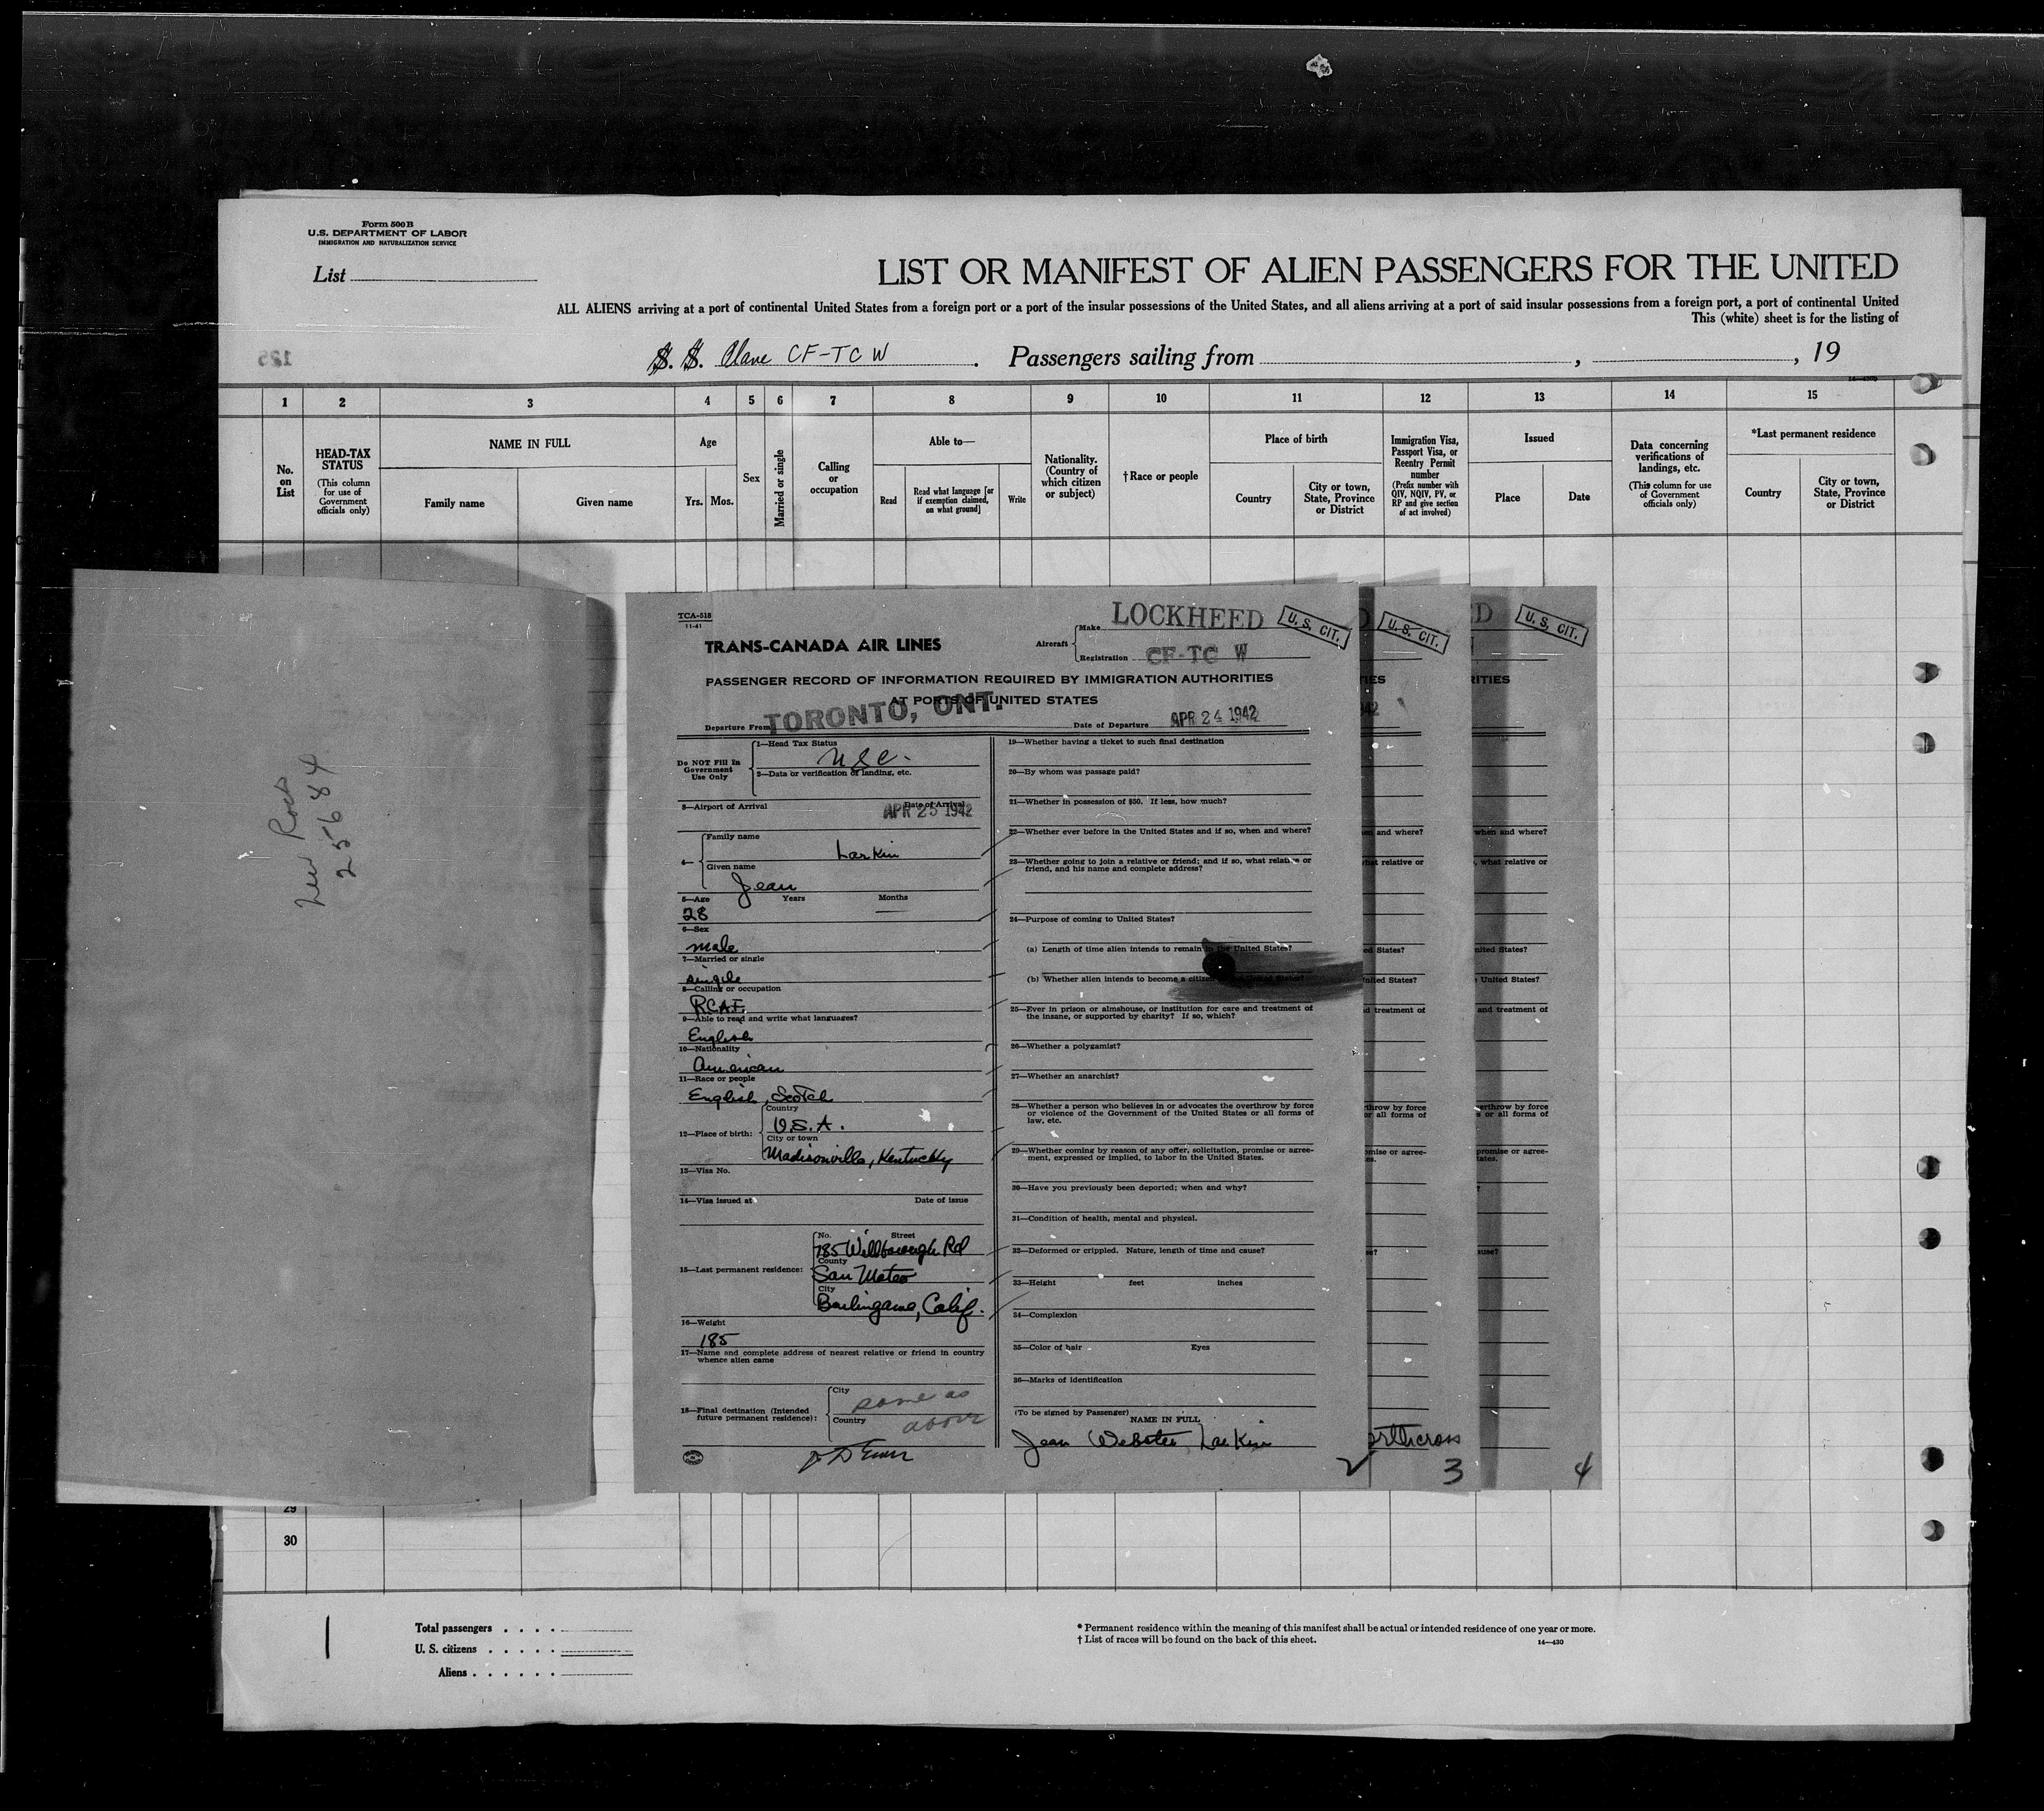 Form 500 B
U.S. DEPARTMENT OF LABOR
IMMIGRATION AND NATURALIZATION SERVICE
List
LIST OR MANIFEST OF ALIEN PASSENGERS FOR THE UNITED
ALL ALIENS arriving at a port of continental United States from a foreign port or a port of the insular possessions of the United States, and all aliens arriving at a port of said insular possessions from a foreign port, a port of continental United
This (white) sheet is for the listing of
125
S. S. Plane CF-TC W . Passengers sailing from , , 19
1 2 3 4 5 6 7 8 9 10 11 12 13 14 15
No. on List
HEAD-TAX STATUS
(This column for use of Government officials only)
NAME IN FULL
Family name Given name
Age
Yrs. Mos.
Sex
Married or single
Calling or occupation
Able to—
Read
Read what language [or if exemption claimed, on what ground]
Write
Nationality. (Country of which citizen or subject)
†Race or people
Place of birth
Country
City or town, State, Province or District
Immigration Visa, Passport Visa, or Reentry Permit number
(Prefix number with QIV, NQIV, PV, or RP and give section of act involved)
Issued
Place Date
Data concerning verifications of landings, etc.
(This column for use of Government officials only)
*Last permanent residence
Country
City or town, State, Province or District
255684
TCA-518
11-41
TRANS-CANADA AIR LINES
Aircraft
Make LOCKHEED
Registration CF-TC W
U. S. CIT.
U. S. CIT.
U. S. CIT.
PASSENGER RECORD OF INFORMATION REQUIRED BY IMMIGRATION AUTHORITIES
AT PORTS OF UNITED STATES
Departure From TORONTO, ONT.
Date of Departure APR 24 1942
Do NOT Fill In Government Use Only
1—Head Tax Status
USC.
2—Data or verification of landing, etc.
3—Airport of Arrival Date of Arrival
APR 25 1942
4—
Family name
Larkin
Given name
Jean
5—Age Years Months
28 —
6—Sex
male
7—Married or single
single
8—Calling or occupation
R.C.A.F.
9—Able to read and write what languages?
English
10—Nationality
American
11—Race or people
English, Scotch
12—Place of birth:
Country
U.S.A.
City or town
Madisonville, Kentucky
13—Visa No.
14—Visa issued at Date of issue
15—Last permanent residence:
No. Street
785 Willborough Rd
County
San Mateo
City
Burlingame, Calif.
16—Weight
185
17—Name and complete address of nearest relative or friend in country
whence alien came
18—Final destination (Intended
future permanent residence):
City
same as
Country
above
19—Whether having a ticket to such final destination
20—By whom was passage paid?
21—Whether in possession of $50. If less, how much?
22—Whether ever before in the United States and if so, when and where?
23—Whether going to join a relative or friend; and if so, what relative or
friend, and his name and complete address?
24—Purpose of coming to United States?
(a) Length of time alien intends to remain in the United States?
(b) Whether alien intends to become a citizen of the United States?
25—Ever in prison or almshouse, or institution for care and treatment of
the insane, or supported by charity? If so, which?
26—Whether a polygamist?
27—Whether an anarchist?
28—Whether a person who believes in or advocates the overthrow by force
or violence of the Government of the United States or all forms of
law, etc.
29—Whether coming by reason of any offer, solicitation, promise or agree-
ment, expressed or implied, to labor in the United States.
30—Have you previously been deported; when and why?
31—Condition of health, mental and physical.
32—Deformed or crippled. Nature, length of time and cause?
33—Height feet inches
34—Complexion
35—Color of hair Eyes
36—Marks of identification
(To be signed by Passenger)
NAME IN FULL
Jean Webster Larkin
orthcross
2
3
4
29
30
Total passengers
U. S. citizens
Aliens
* Permanent residence within the meaning of this manifest shall be actual or intended residence of one year or more.
† List of races will be found on the back of this sheet.
14—430